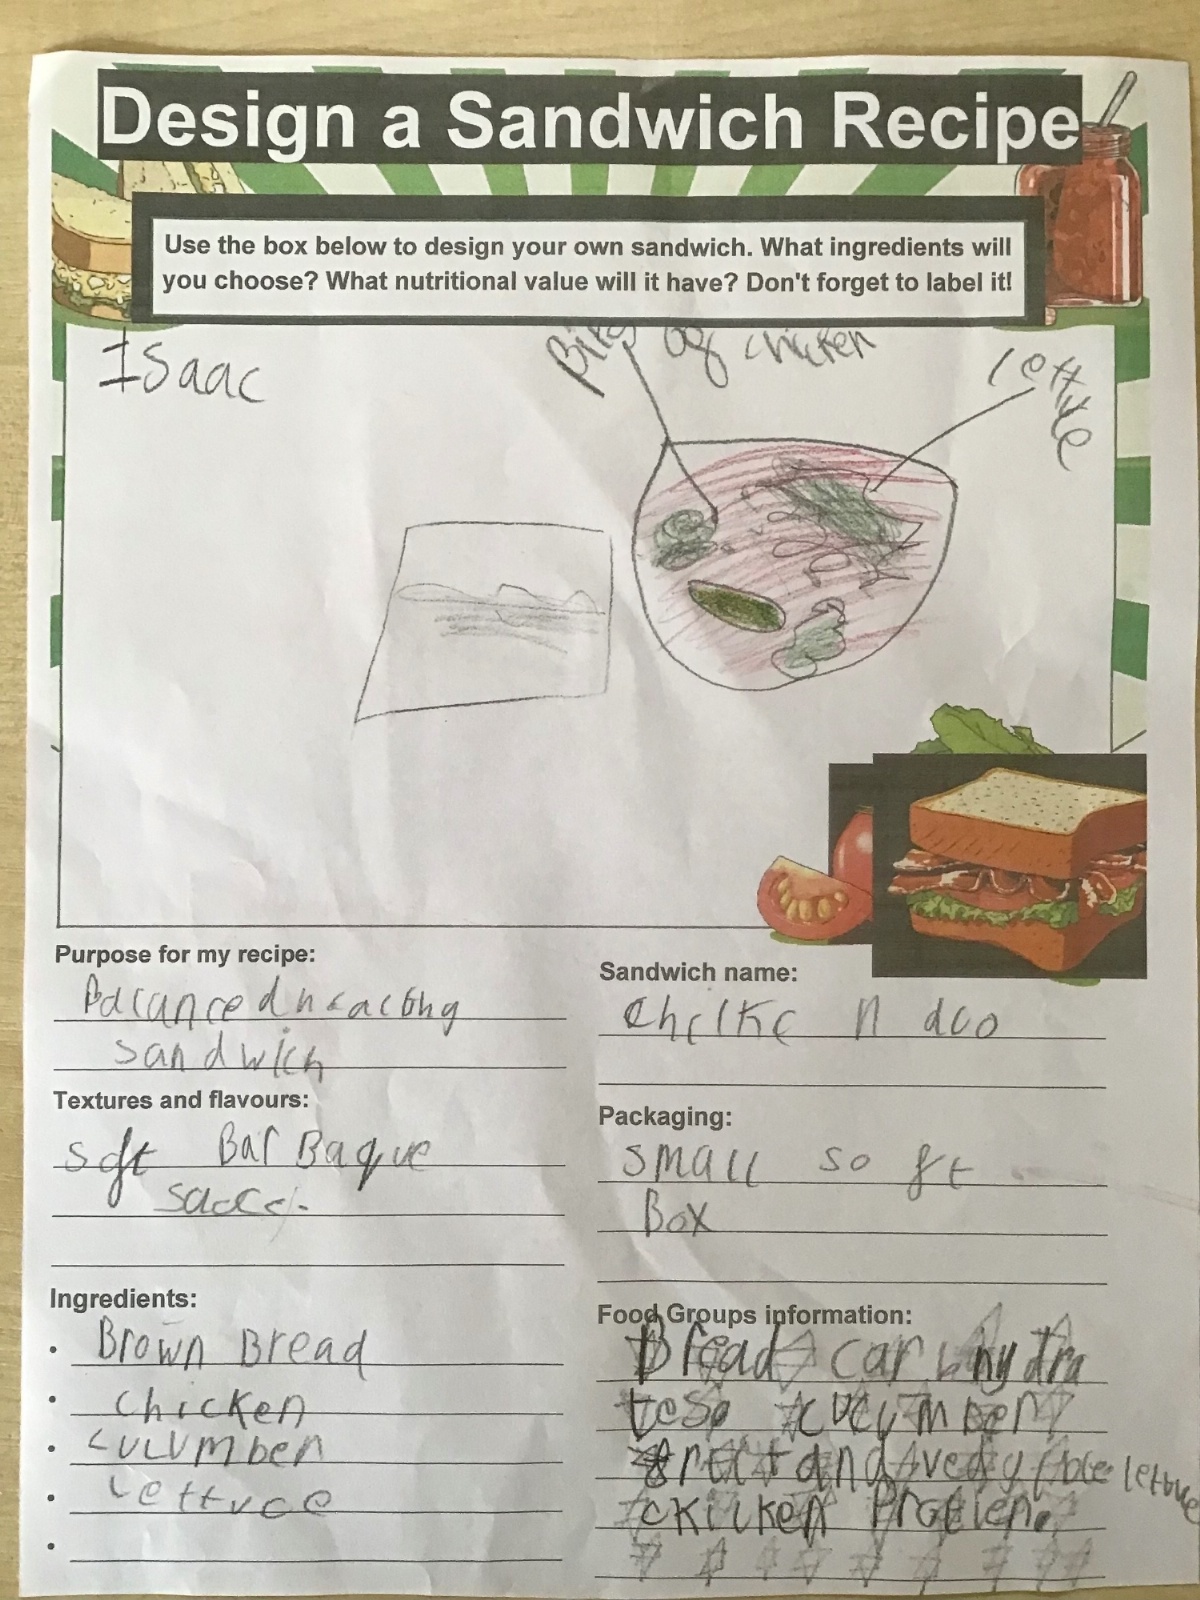 Design a Sandwich Recipe
Use the box below to design your own sandwich. What ingredients will
you choose? What nutritional value will it have? Don't forget to label it!
Isaac
of chicken
lettuce
Purpose for my recipe:
sandwich
Textures and flavours:
soft BarBaque
Ingredients:
Brown Bread
chicken
cucumben
lettuce
Sandwich name:
Packaging:
small so ft
Box
Food Groups information:
Bread car bhydra
tes cucumben
and lettuce
chicken